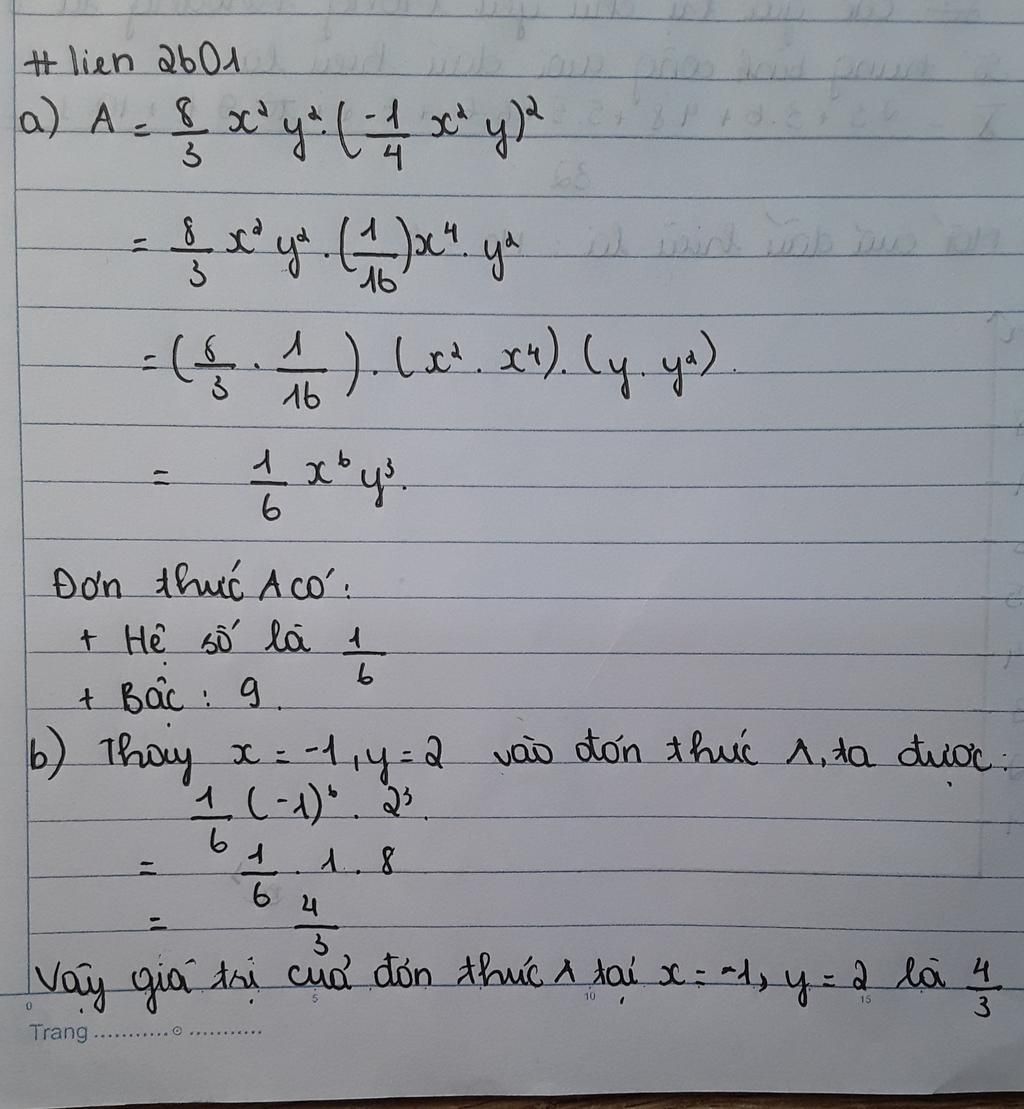 # lien 2601
a) A = 8/3 x² y² . (-1/4 x² y)²
= 8/3 x² y² . (1/16) x⁴ . y²
= (8/3 . 1/16) . (x² . x⁴) . (y . y²) .
= 1/6 x⁶ y³.
Đơn thức A có :
+ Hệ số là 1/6
+ Bậc : 9 .
b) Thay x = -1, y = 2 vào đơn thức A, ta được :
1/6 (-1)⁶ . 2³.
= 1/6 . 1 . 8
= 4/3
Vậy giá trị của đơn thức A tại x = -1, y = 2 là 4/3
0 5 10 15
Trang ........... ...........